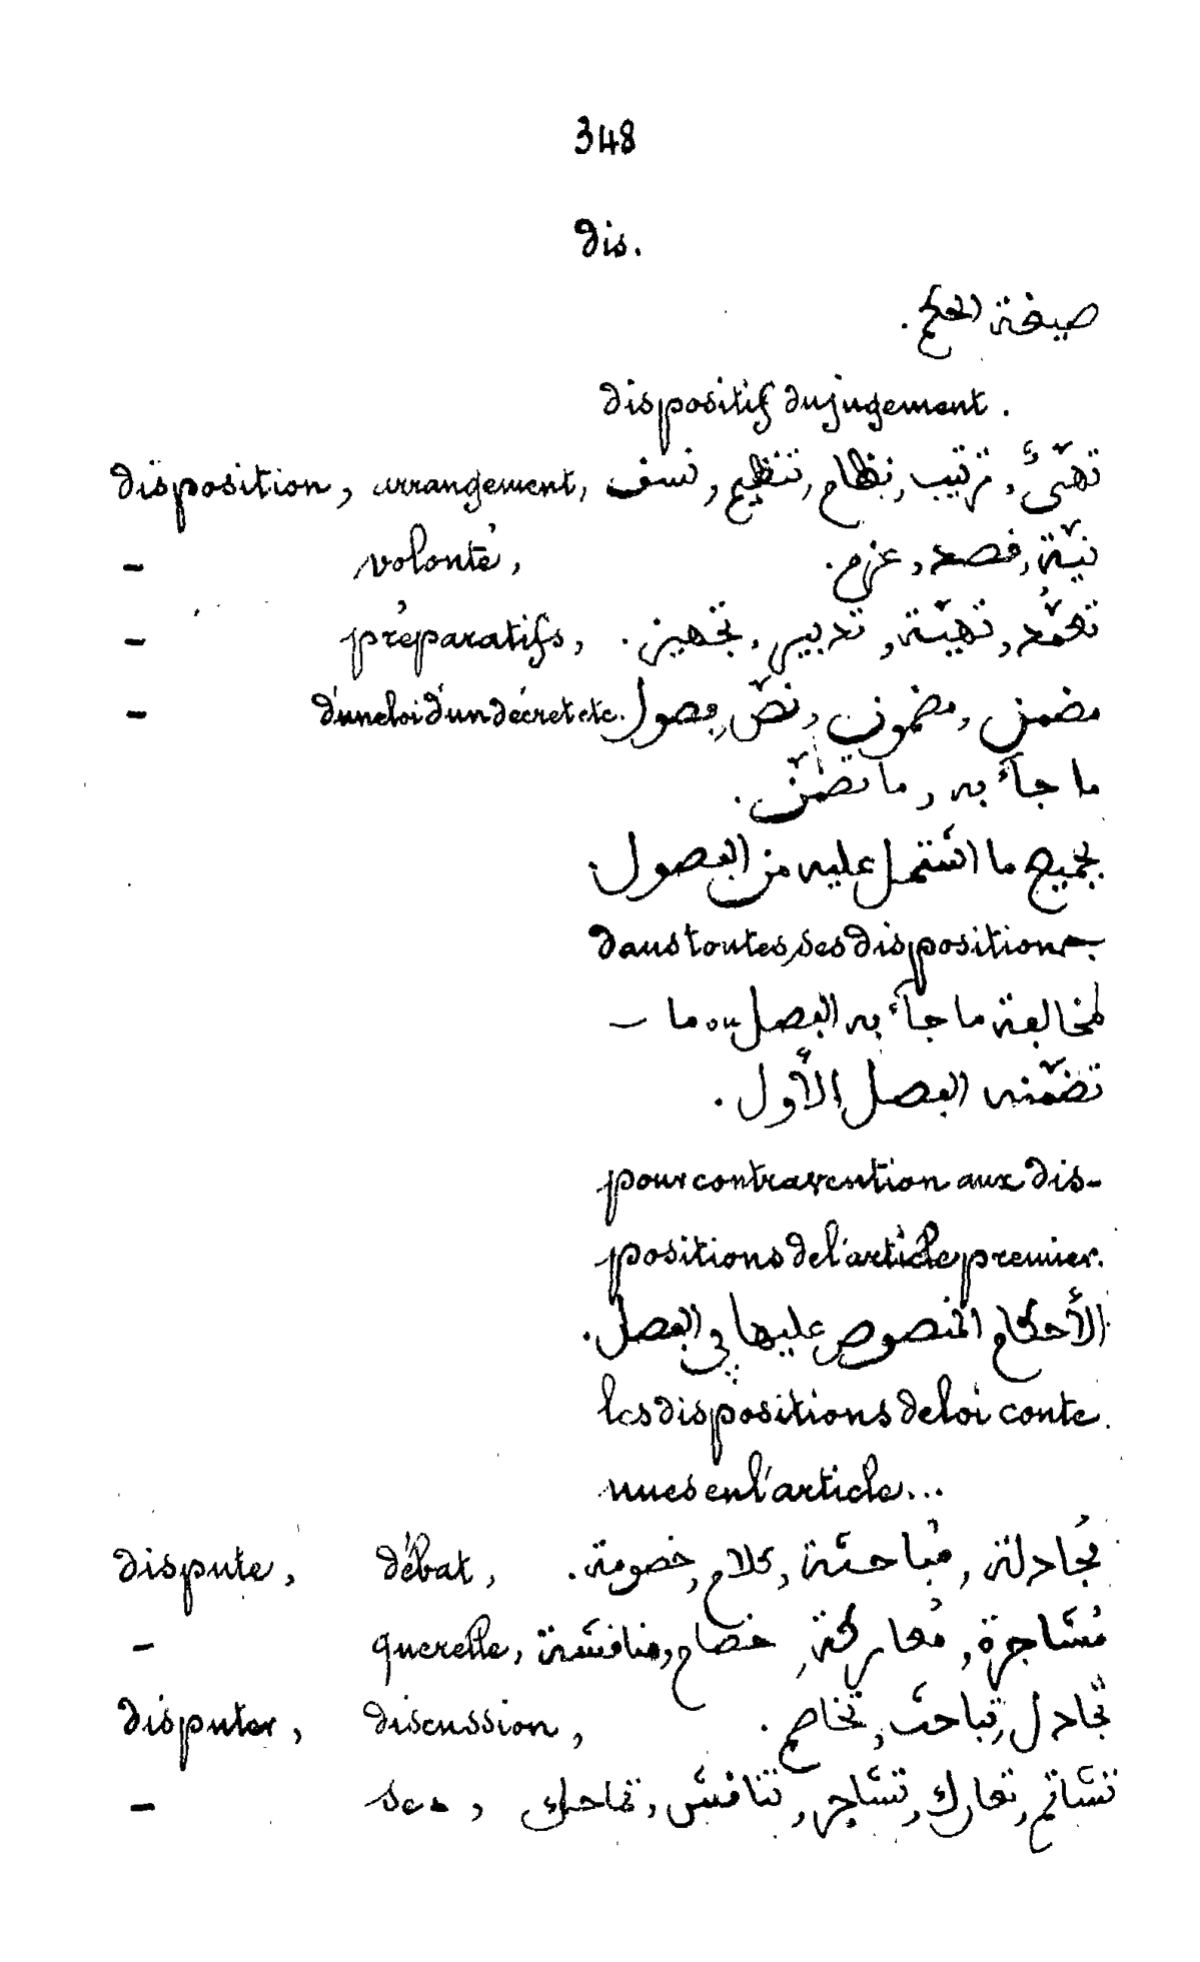 348
dis.
صيغة الحكم.
dispositif du jugement.
disposition, arrangement, تهيّئ, ترتيب, نظام, تنظيم, نسق
- volonté, نيّة, قصد, عزم.
- préparatifs, تعمّد, تهيّة, تدبير, تجهيز.
- d'une loi d'un décret etc. مضمن, مضمون, نصّ, فصول
ما جآء به, ما تضمّن.
بجميع ما اشتمل عليه من الفصول.
dans toutes ses dispositions
لمخالفة ما جآء به الفصل ou ما —
تضمّنه الفصل الأول.
pour contravention aux dis-
positions de l'article premier.
الأحكام المنصوص عليها في الفصل.
les dispositions de loi conte
nues en l'article...
dispute, débat, مُجادلة, مُباحثة, كلام, خصومة.
- querelle, مُشاجرة, مُعاركة, خصام, منافشة
disputer, discussion, تجادل, تباحث, تخاصم.
- se, تشاتم, تعارك, تشاجر, تنافش, تماحك